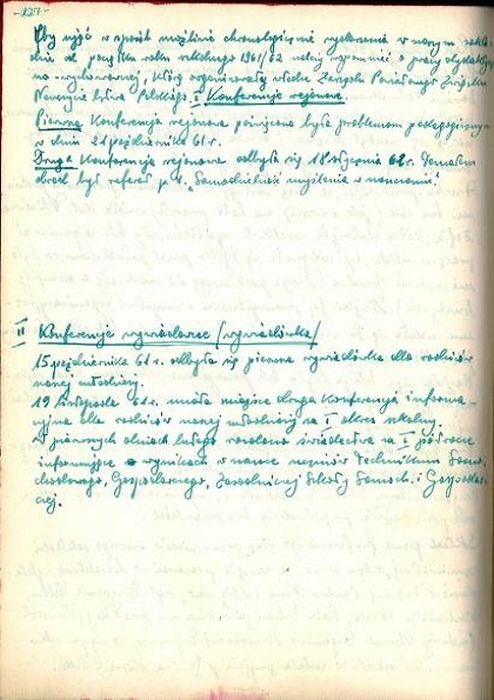 -127-
Aby ująć w sposób możliwie chronologicznie wydarzenia w naszym
dniu od początku roku szkolnego 1961/62 należy wspomnieć o pracy dydaktycz
no-wychowawczej, którą organizowały władze Zarządu Powiatowego Związku
Nauczycielstwa Polskiego. I Konferencje rejonowe.
Pierwsza Konferencja rejonowa poświęcona była problemom pedagogicznym
w dniu 21 października 61 r.
Druga Konferencja rejonowa odbyła się 18 stycznia 62 r. Tematem
obrad był referat p.t. „Samodzielność myślenia w nauczaniu"
II Konferencje wywiadowcze /wywiadówka/
15 października 61 r. odbyła się pierwsza wywiadówka dla rodziców
naszej młodzieży.
19 listopada 61 r. miała miejsce druga Konferencja informa-
cyjna dla rodziców naszej młodzieży za I okres szkolny.
W pierwszych dniach lutego rozesłano świadectwa za I półrocze
informujące o wynikach w nauce uczniów Technikum Samo-
chodowego, Gospodarczego, Zasadniczej Szkoły Samoch. i Gospodar-
czej.